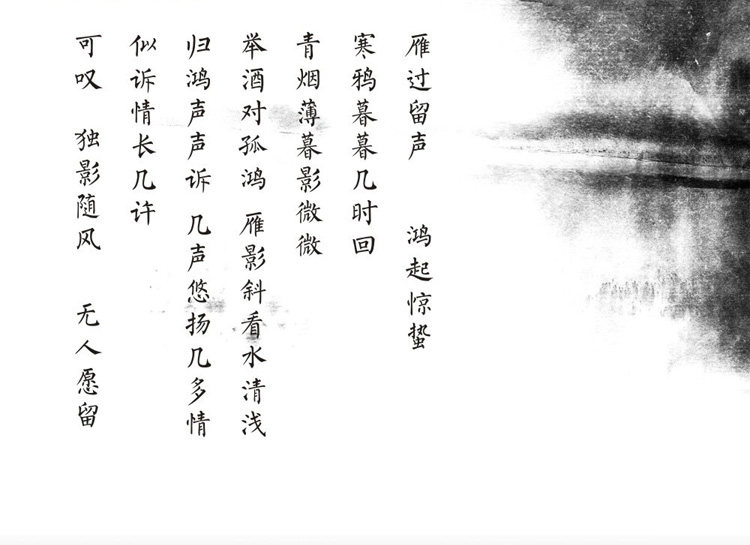 雁过留声　　鸿起惊蛰
寒鸦暮暮几时回
青烟薄暮影微微
举酒对孤鸿　雁影斜看水清浅
归鸿声声诉　几声悠扬几多情
似诉情长几许
可叹　独影随风　无人愿留